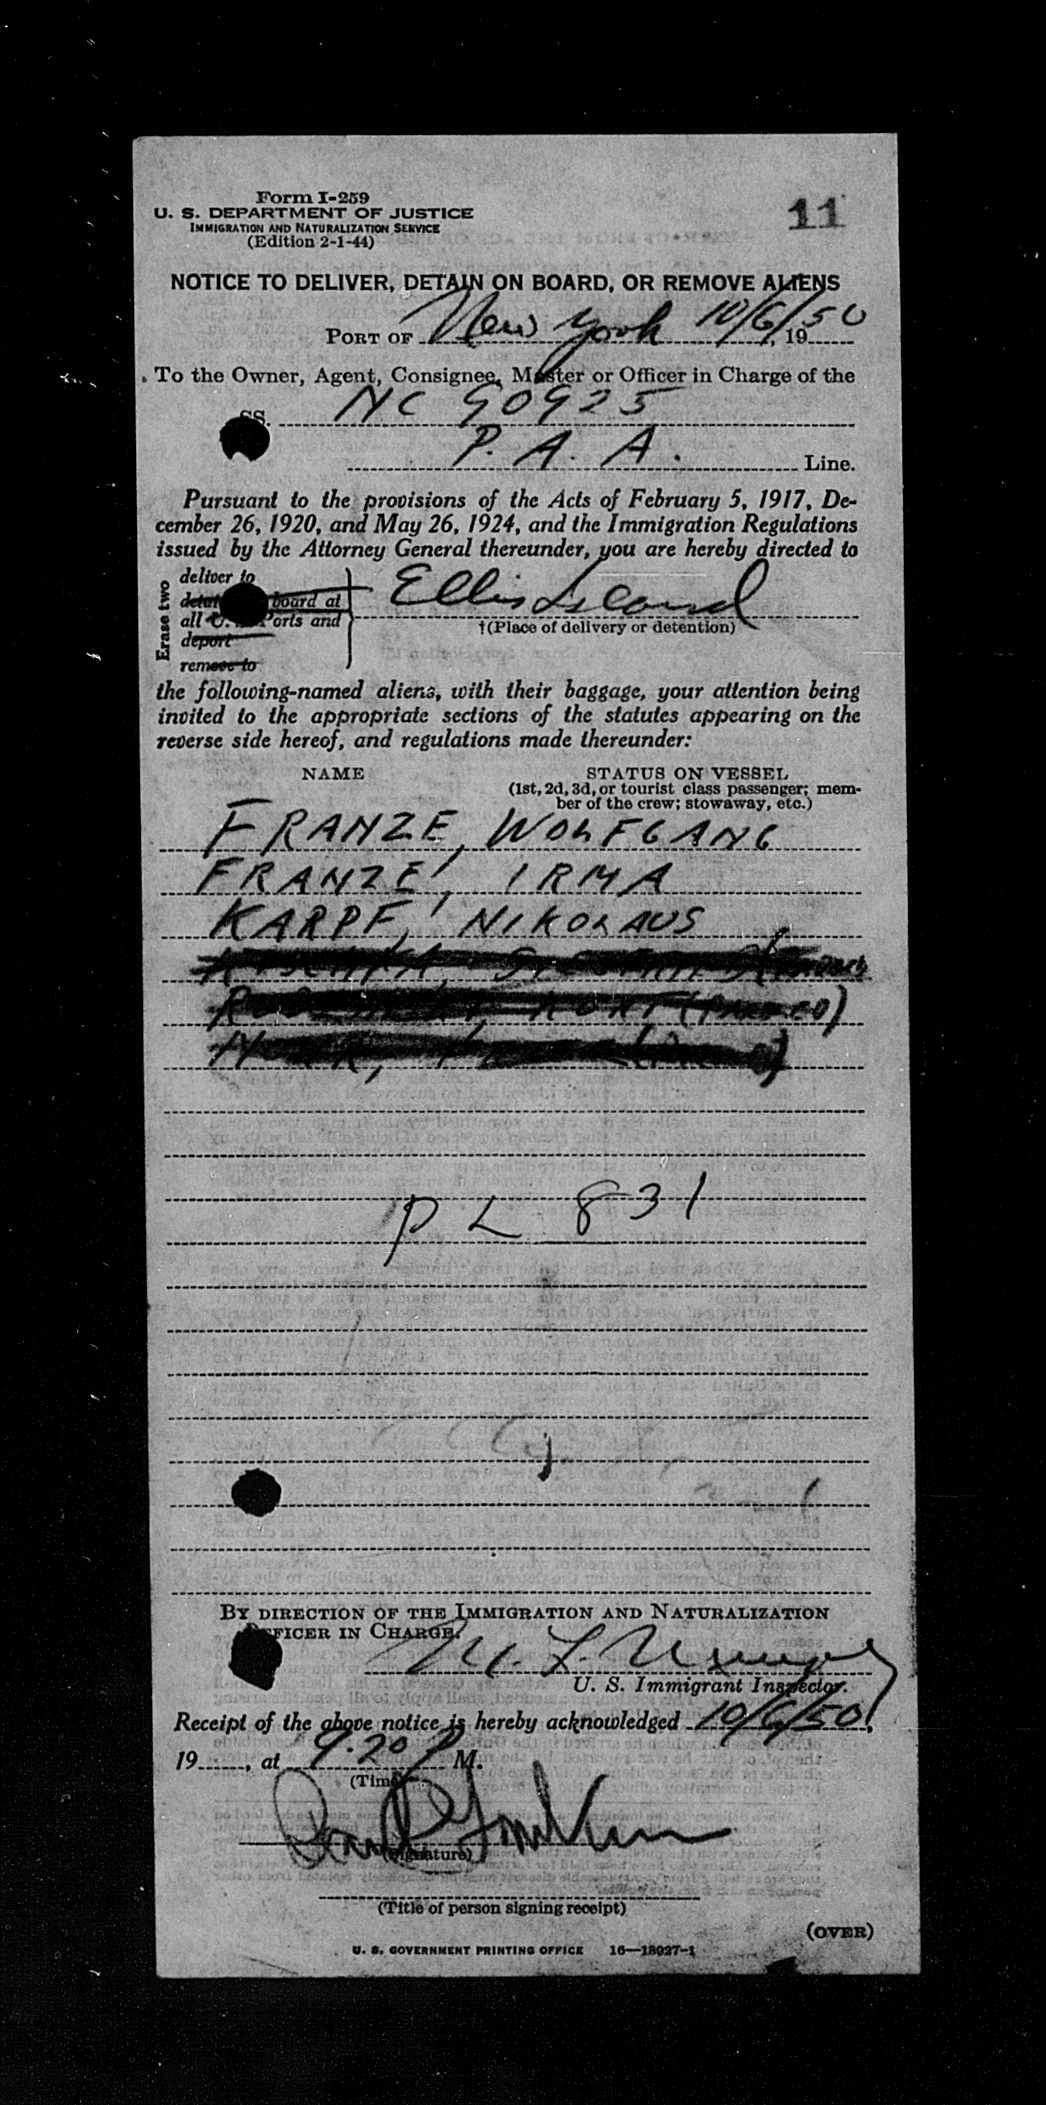 Form I-259
U. S. DEPARTMENT OF JUSTICE
IMMIGRATION AND NATURALIZATION SERVICE
(Edition 2-1-44)
11
NOTICE TO DELIVER, DETAIN ON BOARD, OR REMOVE ALIENS
PORT OF New York 10/6/, 1950
To the Owner, Agent, Consignee, Master or Officer in Charge of the
SS. NC 90925
P. A. A. Line.
Pursuant to the provisions of the Acts of February 5, 1917, De-
cember 26, 1920, and May 26, 1924, and the Immigration Regulations
issued by the Attorney General thereunder, you are hereby directed to
Erase two
deliver to
board at
all U. Ports and
deport
remove to
Ellis Island
†(Place of delivery or detention)
the following-named aliens, with their baggage, your attention being
invited to the appropriate sections of the statutes appearing on the
reverse side hereof, and regulations made thereunder:
NAME STATUS ON VESSEL
(1st, 2d, 3d, or tourist class passenger; mem-
ber of the crew; stowaway, etc.)
FRANZE, WOLFGANG
FRANZE, IRMA
KARPF, NIKOLAUS
PL 831
BY DIRECTION OF THE IMMIGRATION AND NATURALIZATION
OFFICER IN CHARGE.
U. S. Immigrant Inspector.
Receipt of the above notice is hereby acknowledged 10/6/50,
19, at 9:20 P M.
(Time)
(Signature)
(Title of person signing receipt)
(OVER)
U. S. GOVERNMENT PRINTING OFFICE 16—18027-1